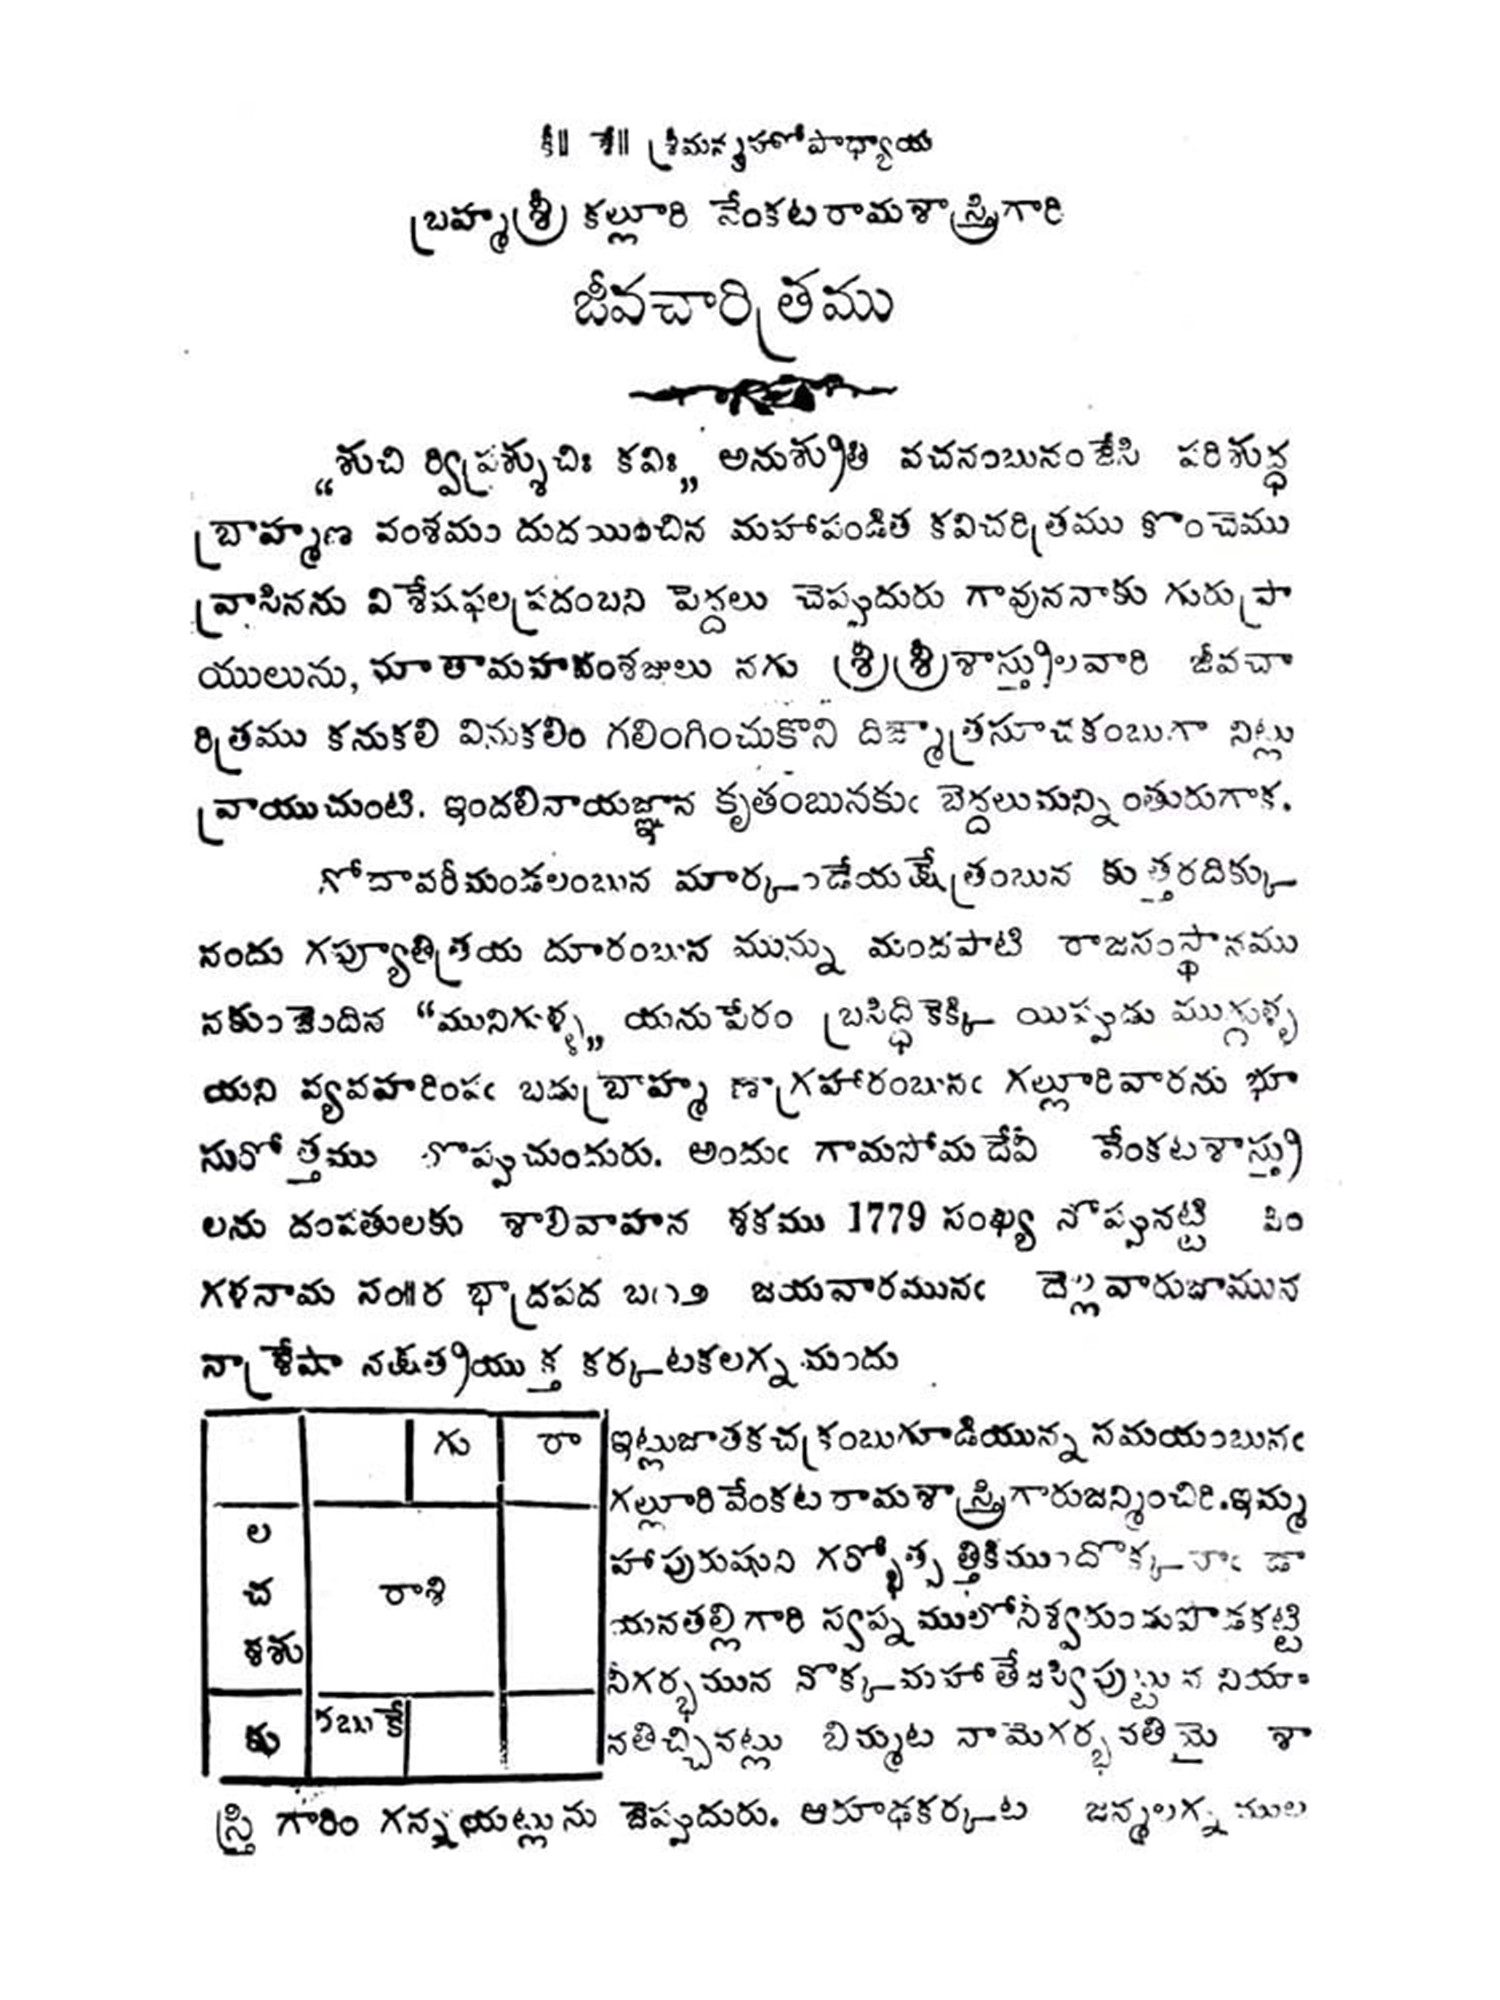 కీ॥ శే॥ శ్రీమన్మహోపాధ్యాయ
బ్రహ్మశ్రీ కల్లూరి వేంకటరామశాస్త్రిగారి
జీవచారిత్రము
“శుచి ర్విప్రశ్శుచిః కవిః„ అనుశ్రుతి వచనంబునంజేసి పరిశుద్ధ
బ్రాహ్మణ వంశము దుదయించిన మహాపండిత కవిచరిత్రము కొంచెము
వ్రాసినను విశేషఫలప్రదంబని పెద్దలు చెప్పుదురు గావుననాకు గురుప్రా
యులును, మాతామహవంశజులు నగు శ్రీశ్రీశాస్త్రులవారి జీవచా
రిత్రము కనుకలి వినుకలిం గలింగించుకొని దిఙ్మాత్రసూచకంబుగా నిట్లు
వ్రాయుచుంటి. ఇందలినాయజ్ఞాన కృతంబునకుఁ బెద్దలుమన్నింతురుగాక.
గోదావరీమండలంబున మార్కండేయక్షేత్రంబున కుత్తరదిక్కు
నందు గవ్యూతిత్రితయ దూరంబున మున్ను మండపాటి రాజసంస్థానము
నకుంజెందిన “మునిగుళ్ళ„ యనుపేరం బ్రసిద్ధికెక్కి యిప్పుడు ముగ్గుళ్ళ
యని వ్యవహరింపఁ బడుబ్రాహ్మణాగ్రహారంబునఁ గల్లూరివారను భూ
సురోత్తము లొప్పుచుందురు. అందుఁ గామసోమదేవీ వేంకటశాస్త్రు
లను దంపతులకు శాలివాహన శకము 1779 సంఖ్య నొప్పునట్టి పిం
గళనామ సం॥ర భాద్రపద బ౧౨ జయవారమునఁ దెల్లవారుజామున
నాశ్రేషా నక్షత్రయుక్త కర్కటకలగ్న మందు
గు రా
ల
చ
రాశి
శశు
కు
రబుకే
ఇట్లుజాతకచక్రంబుగూడియున్న సమయంబునఁ
గల్లూరివేంకటరామశాస్త్రిగారుజన్మించిరి.ఇమ్మ
హాపురుషుని గర్భోత్పత్తికిముందొక్క నాఁ డా
యనతల్లిగారి స్వప్నములోనీశ్వరుండుపొడకట్టి
నీగర్భమున నొక్కమహాతేజస్విపుట్టు ననియా
నతిచ్చినట్లు బిమ్మట నామెగర్భవతియై శా
స్త్రి గారిం గన్నయట్లును జెప్పుదురు. ఆరూఢకర్కట జన్మలగ్నముల